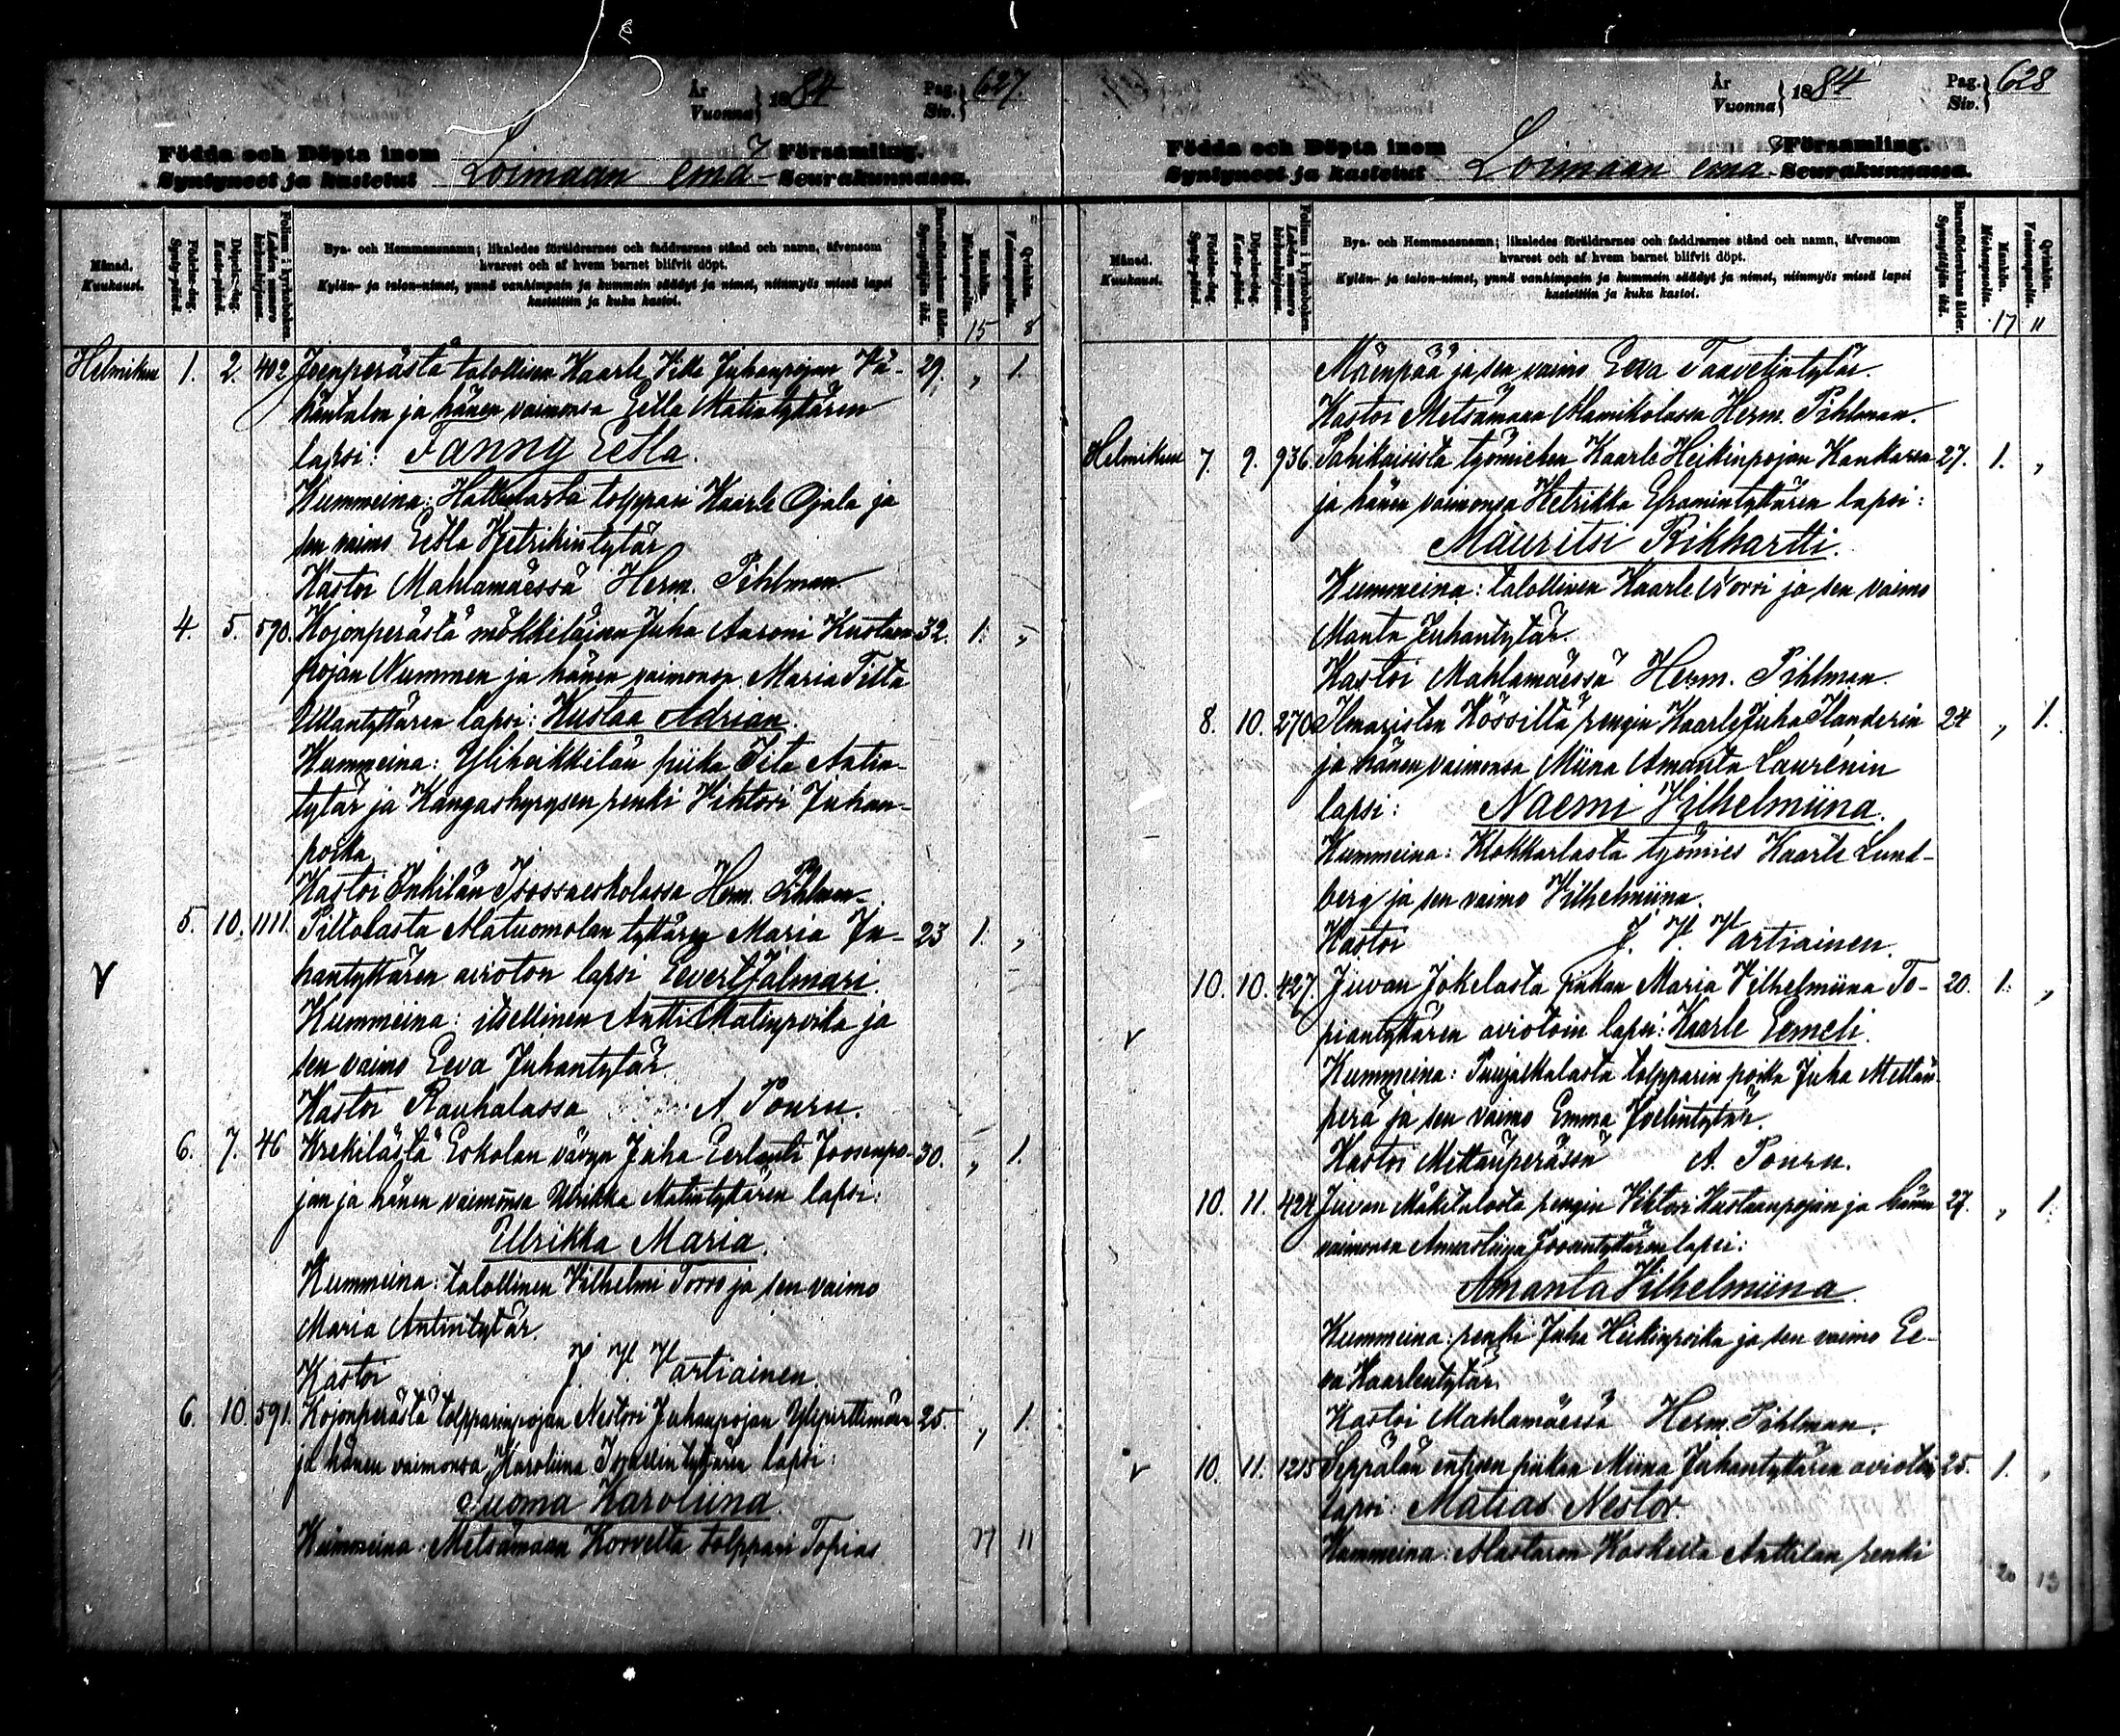 År
Vuonna } 1884 Pag.
Siv. } 627.
Födda och Döpta inom
Syntyneet ja kastetut Loimaan emä- Församling.
Seurakunnassa.
Månad.
Kuukausi.
Födelse-dag.
Synty-päivä.
Döpelse-dag.
Kaste-päivä.
Folium i kyrkoboken.
Lehden numero kirkonkirjassa.
Bya- och Hemmansnamn; likaledes föräldrarnes och faddrarnes stånd och namn, äfvensom
hvarest och af hvem barnet blifvit döpt.
Kylän- ja talon-nimet, ynnä vanhimpain ja kummein säädyt ja nimet, niinmyös missä lapsi
kastettiin ja kuka kastoi.
Barnaföderskans ålder.
Synnyttäjän ikä.
Mankön.
Miehenpuolia.
Qvinkön.
Vaimonpuolia.
15 8
Helmikuu 1. 2. 402 Joenperästä talollisen Kaarle Ville Juhanpojan Vä- 29. „ 1.
häntalon ja hänen vaimonsa Eetla Matintyttären
lapsi: Fanny Eetla.
Kummeina: torppari Kaarle Ojala ja
sen vaimo Eetla Hetrikintytär
Kastoi Mahlamäessä Herm. Pihlman
4. 5. 590. Kojonperästä mökkiläisen Juha Aaroni Kustaan- 32. 1. „
pojan Nummen ja hänen vaimonsa Maria Tilta
Ullantyttären lapsi: Kustaa Adrian.
Kummeina: Yliheikkilän piika Iita Antin-
tytär ja Kangashyrysen renki Vihtori Juhan-
poika
Kastoi Inkilän Isossaeskolassa Herm. Pihlman
5. 10. 1111. Piltolasta Alatuomolan tyttären Maria Ju- 23 1. „
hantyttären avioton lapsi Eevert Jalmari.
Kummeina: itsellinen Antti Matinpoika ja
sen vaimo Eeva Juhantytär
Kastoi Rauhalassa A. Pouru.
6. 7. 46 Krekilästä Eskolan vävyn Juha Eerlanti Joosenpo- 30. „ 1.
jan ja hänen vaimonsa Ulrikka Matintyttären lapsi:
Ullrikka Maria.
Kummeina: talollinen Vilhelmi Torro ja sen vaimo
Maria Antintytär.
Kastoi J. V. Vartiainen.
6. 10. 591. Kojonperästä torpparinpojan Nestori Juhanpojan Ylipirttimäen 25. „ 1.
ja hänen vaimonsa Karoliina Israelintyttären lapsi:
Suoma Karoliina.
Kummeina: Metsämaan Korvelta torppari Topias
17 11
År
Vuonna } 1884 Pag.
Siv. } 628
Födda och Döpta inom
Syntyneet ja kastetut Loimaan emä- Församling.
Seurakunnassa.
Månad.
Kuukausi.
Födelse-dag.
Synty-päivä.
Döpelse-dag.
Kaste-päivä.
Folium i kyrkoboken.
Lehden numero kirkonkirjassa.
Bya- och Hemmansnamn; likaledes föräldrarnes och faddrarnes stånd och namn, äfvensom
hvarest och af hvem barnet blifvit döpt.
Kylän- ja talon-nimet, ynnä vanhimpain ja kummein säädyt ja nimet, niinmyös missä lapsi
kastettiin ja kuka kastoi.
Barnaföderskans ålder.
Synnyttäjän ikä.
Mankön.
Miehenpuolia.
Qvinkön.
Vaimonpuolia.
17 11
Mäenpää ja sen vaimo Eeva Taavetintytär.
Kastoi Metsämaan Alamikolassa Herm. Pihlman.
Helmikuu 7. 9. 936. Pahikaisista työmiehen Kaarle Heikinpojan Kankaren 27. 1. „
ja hänen vaimonsa Hetrikka Eframintyttären lapsi:
Mauritsi Rikhartti.
Kummeina: talollinen Kaarle Sorri ja sen vaimo
Manta Juhantytär.
Kastoi Mahlamäessä Herm. Pihlman.
8. 10. 270 Ilmaristen Kössiltä rengin Kaarle Juha Ilanderin 24 „ 1.
ja hänen vaimonsa Miina Amanta Laurénin
lapsi: Naemi Vilhelmiina.
Kummeina: Klokkarlasta työmies Kaarle Lund-
berg ja sen vaimo Vilhelmiina.
Kastoi J. V. Vartiainen.
10. 10. 427. Juvan Jokelasta piikan Maria Vilhelmiina To- 20. 1. „
piantyttären aviotoin lapsi: Kaarle Eemeli.
Kummeina: Puujalkalasta torpparin poika Juha Mettän-
perä ja sen vaimo Emma Joelintytär.
Kastoi Mettänperässä A. Pouru.
10. 11. 424 Juvan Mäkitalosta rengin Vihtori Kustaanpojan ja hänen 27. „ 1.
vaimonsa Amaliina Joosentyttären lapsi:
Amanta Vilhelmiina.
Kummeina: renki Juha Heikinpoika ja sen vaimo Ee-
va Kaarlentytär
Kastoi Mahlamäessä Herm. Pihlman.
10. 11. 1215 Seppälän entisen piikan Miina Juhantyttären aviotoin 25. 1. „
lapsi: Matias Nestor.
Kummeina: Alastaron Koskelta Anttilan renki
20 13